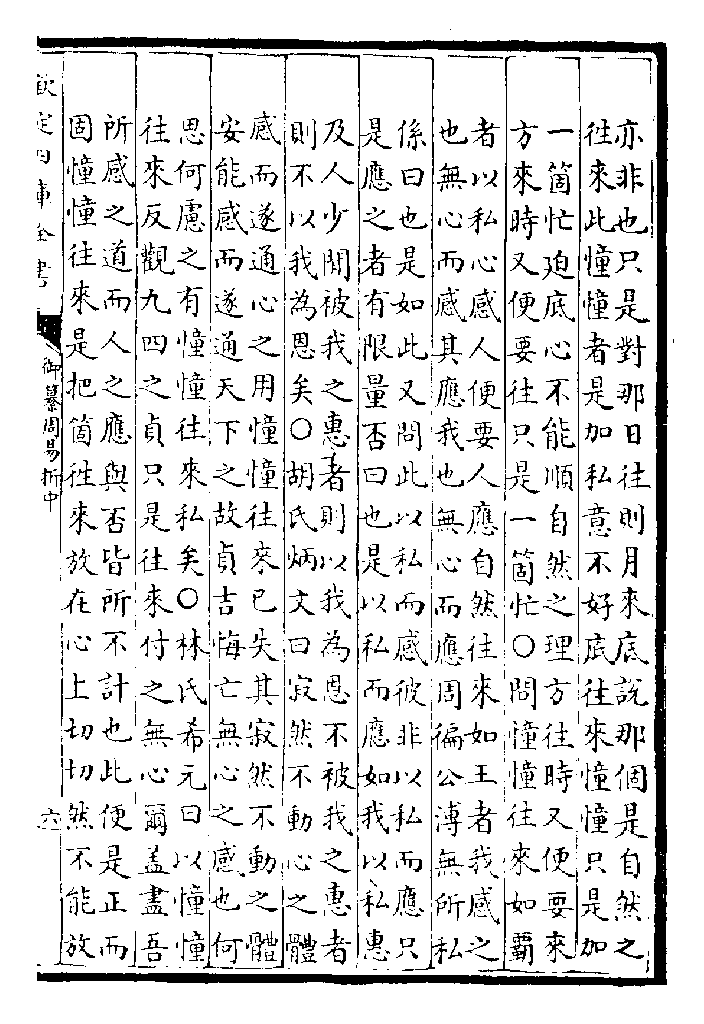 亦非也只是對那日往則月來底說那個是自然之
徃來此憧憧者是加私意不好底往來憧憧只是加
一箇忙迫底心不能順自然之理方往時又便要來
方來時又便要往只是一箇忙○問憧憧往來如霸
者以私心感人便要人應自然往來如王者我感之
也無心而感其應我也無心而應周徧公溥無所私
係曰也是如此又問此以私而感彼非以私而應只
是應之者有限量否曰也是以私而應如我以私惠
及人少間被我之惠者則以我為恩不被我之惠者
則不以我為恩矣○胡氏炳文曰寂然不動心之體
感而遂通心之用憧憧往來已失其寂然不動之體
安能感而遂通天下之故貞吉悔亡無心之感也何
思何慮之有憧憧往來私矣○林氏希元曰以憧憧
往來反觀九四之貞只是往來付之無心爾盖盡吾
所感之道而人之應與否皆所不計也此便是正而
固憧憧往來是把箇徃來放在心上切切然不能放
欽定四庫全書
御纂周易折中
六